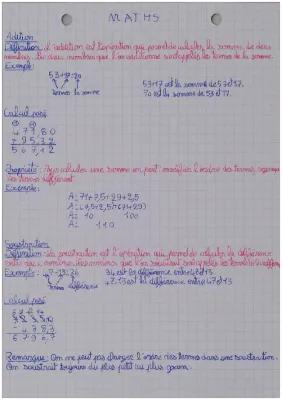 MATHS
Addition
Définition : L'addition est l'opération qui permet de calculer la somme de deux
nombres. Les deux nombres que l'on additionne sont appelés les termes de la somme.
Exemple :
53+17=70
53+17 est la somme de 53 et 17.
termes la somme
70 est la somme de 53 et 17.
Calcul posé
47780
Propriété : Pour calculer une somme on peut modifier l'ordre des termes,
les termes différemment
Exemple :
A=71+7,5+29+2,5
A= 10 100
A= 110
Soustraction
Définition : La soustraction est l'opération qui permet de calculer la différence
entre deux nombres. Les nombres que l'on soustrait sont appelés les termes de la différence.
Exemple : 47-13=34
34 est la différence entre 47 et 13
termes différence
47-13 est la différence entre 47 et 13
Calcul posé
- 4783
57967
Remarque : On ne peut pas changer l'ordre des termes dans une soustraction.
On soustrait toujours du plus petit au plus grand.